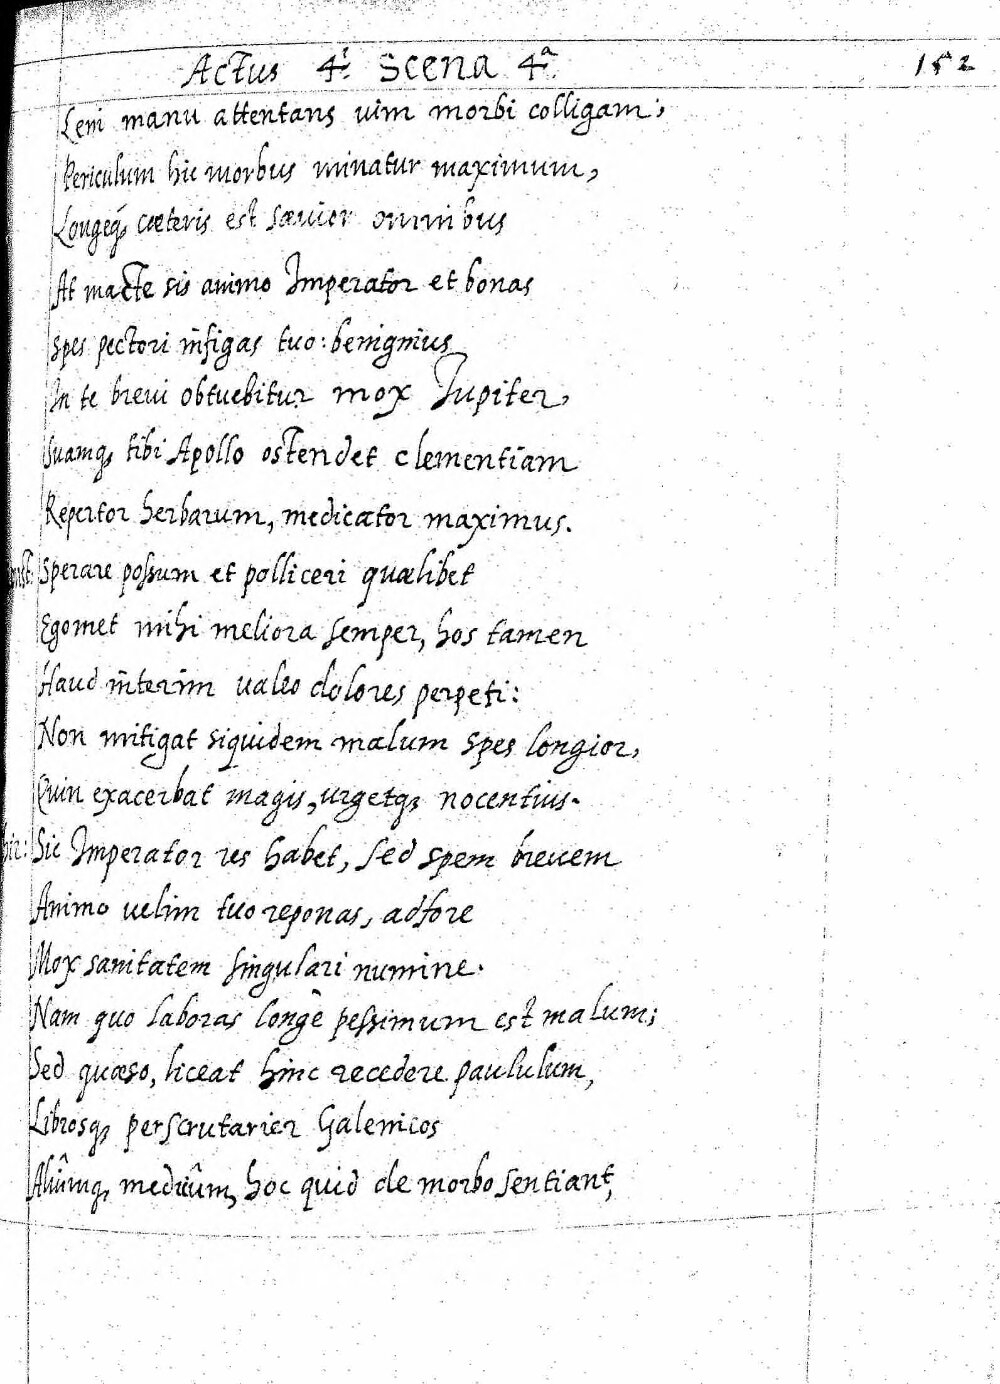 Actus 4.i Scena 4.a 152
Leni manu attentans uim morbi colligam;
Periculum hic morbus minatur maximum,
Longeq, cæteris est sæuior omnibus
At macte sis animo Imperator et bonas
spes pectori infigas tuo: benignius
In te breui obtuebitur mox Iupiter,
Suamq, tibi Apollo ostendet clementiam
Repertor herbarum, medicator maximus.
Sperare possum et polliceri quælibet
Egomet mihi meliora semper, hos tamen
Haud interim ualeo dolores perpeti:
Non mitigat siquidem malum spes longior,
Quin exacerbat magis, urgetq, nocentius.
Sic Imperator res habet, sed spem breuem
Animo uelim tuo reponas, adfore
Mox sanitatem singulari numine.
Nam quo laboras longè pessimum est malum;
Sed quæso, liceat hinc recedere paululum,
Librosq, perscrutarier Galenicos
Aliûmq, medicûm, hoc quid de morbo sentiant,